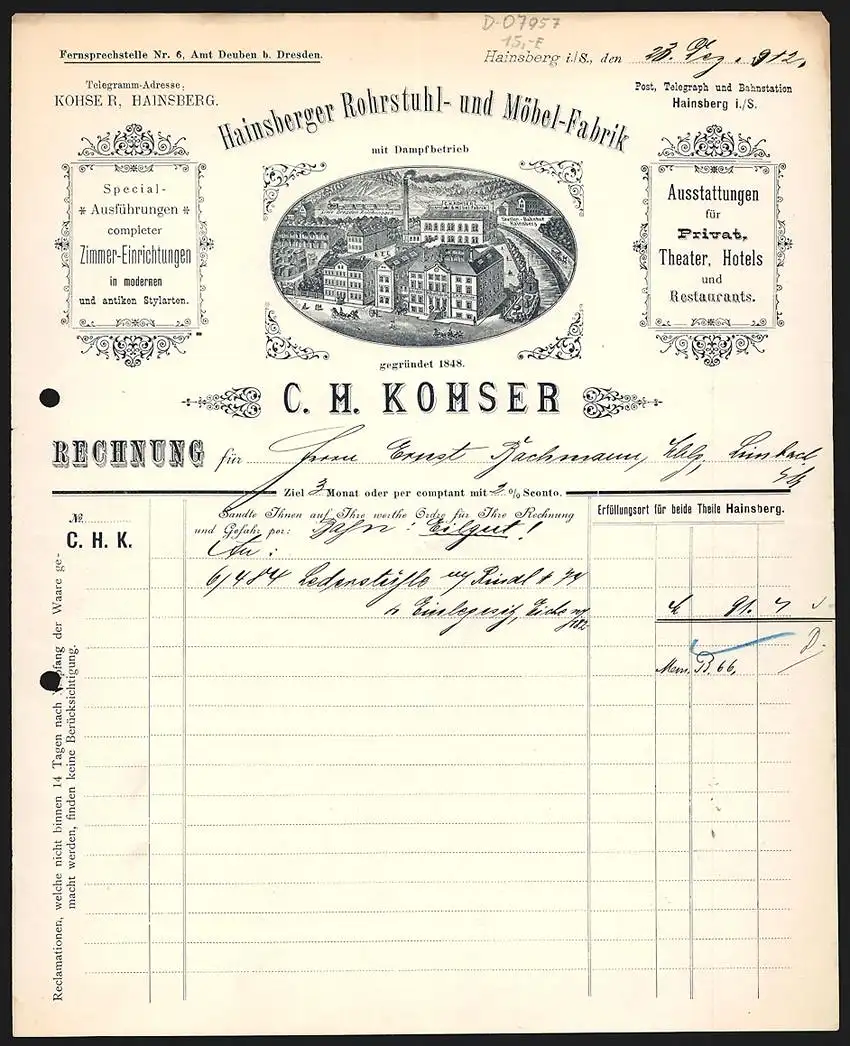 D-07957
15,-E
Fernsprechstelle Nr. 6, Amt Deuben b. Dresden.
Hainsberg i./S., den 23. Dez. 912.
Telegramm-Adresse:
KOHSER, HAINSBERG.
Post, Telegraph und Bahnstation
Hainsberg i./S.
Hainsberger Rohrstuhl- und Möbel-Fabrik
mit Dampfbetrieb
Special-
Ausführungen
completer
Zimmer-Einrichtungen
in modernen
und antiken Stylarten.
Ausstattungen
für
Privat,
Theater, Hotels
und
Restaurants.
gegründet 1848.
C. H. KOHSER
RECHNUNG für Herrn Ernst Bachmann, Limbach
Ziel 3 Monat oder per comptant mit 2 % Sconto.
Erfüllungsort für beide Theile Hainsberg.
No.
Sandte Ihnen auf Ihre werthe Ordre für Ihre Rechnung
und Gefahr per: Bahn: Eilgut!
C. H. K.
An:
6/484 Lederstühle m/ Rindl
Einlegesitz, Eiche
91.
B. 66.
Reclamationen, welche nicht binnen 14 Tagen nach Empfang der Waare ge-
macht werden, finden keine Berücksichtigung.